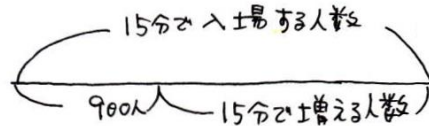 15分で入場する人数
900人
15分で増える人数